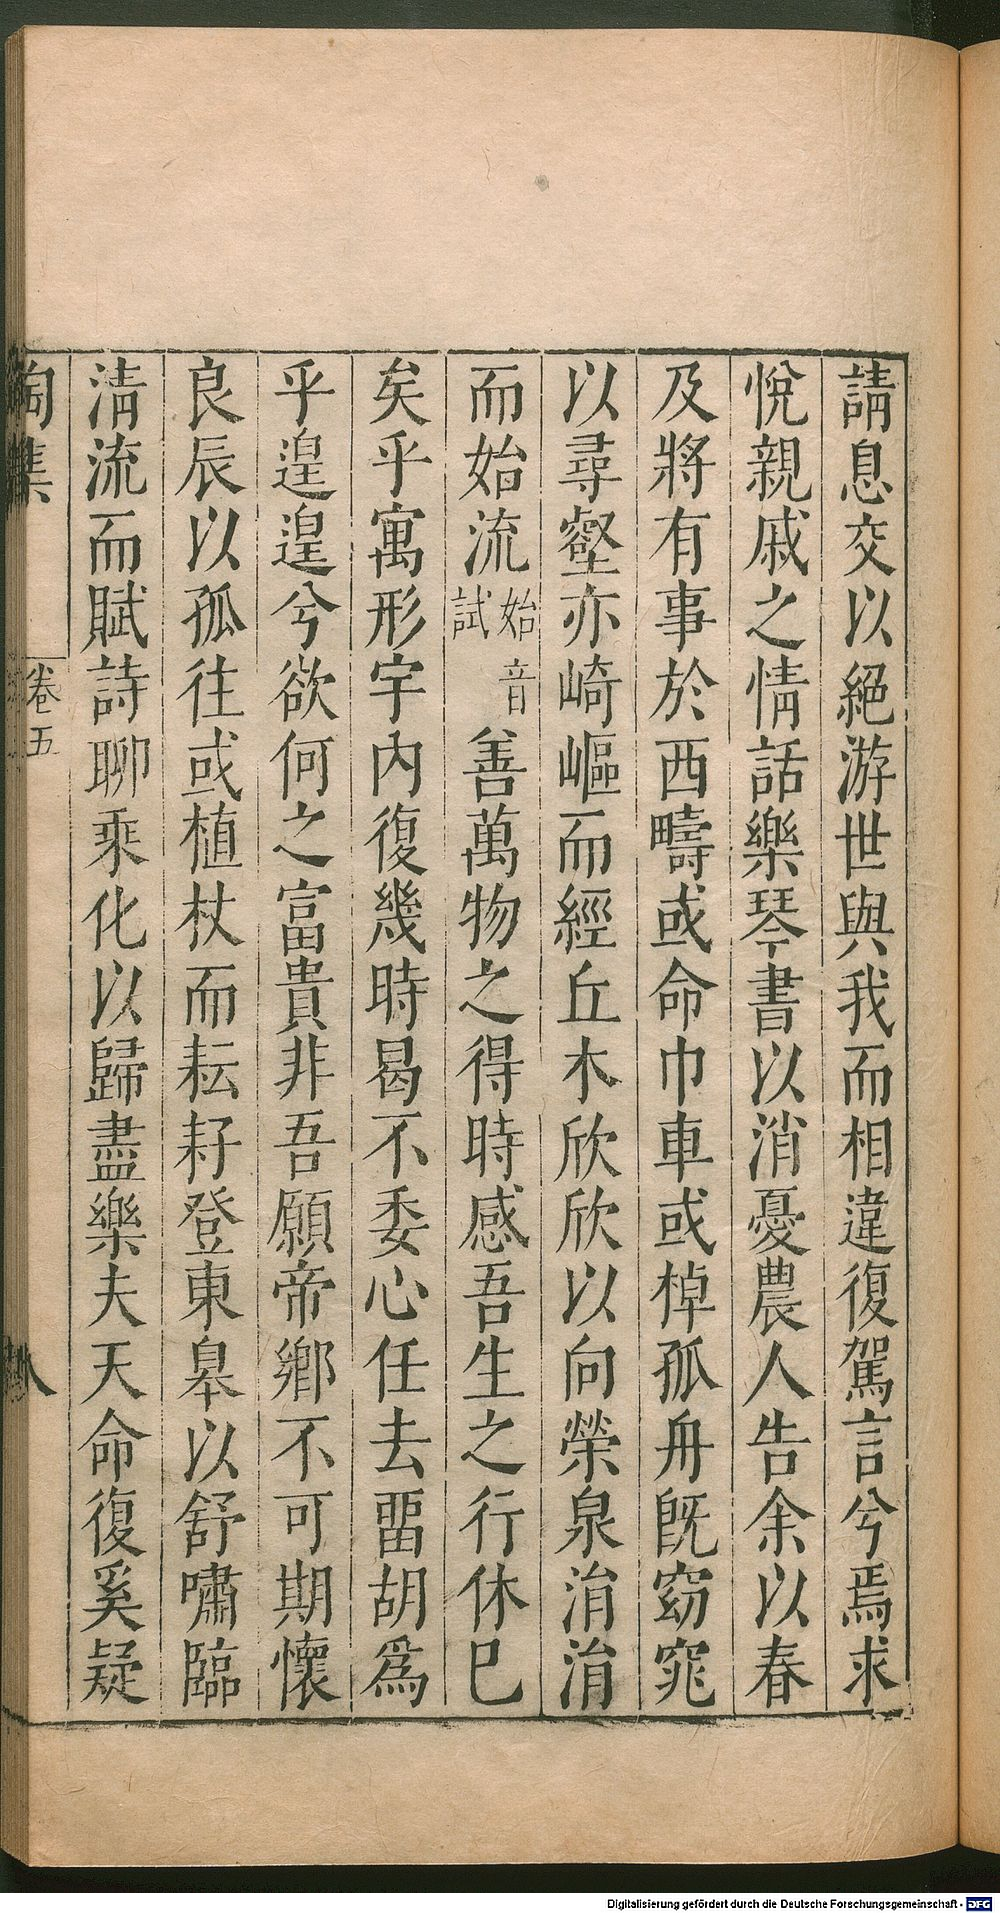 請息交以絕游世與我而相違復駕言兮焉求
悅親戚之情話樂琴書以消憂農人告余以春
及將有事於西疇或命巾車或棹孤舟旣窈窕
以尋壑亦崎嶇而經丘木欣欣以向榮泉涓涓
而始流始音試善萬物之得時感吾生之行休巳
矣乎寓形宇內復幾時曷不委心任去畱胡爲
乎遑遑兮欲何之富貴非吾願帝鄉不可期懷
良辰以孤往或植杖而耘耔登東皋以舒嘯臨
淸流而賦詩聊乘化以歸盡樂夫天命復奚疑
陶集 卷五 八
Digitalisierung gefördert durch die Deutsche Forschungsgemeinschaft - DFG